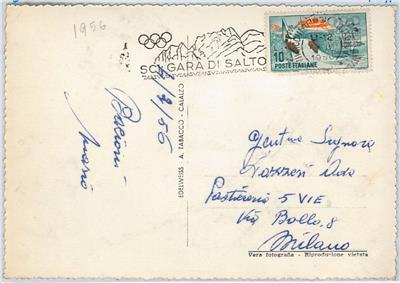 1956
SCI GARA DI SALTO
10
POSTE ITALIANE
1956
5/2/56
Bacioni
Mario
EDELWEISS - A. TABACCO - CALALZO
Gentile Signora
Ada
Pasticceria 5 VIE
Via Bollo, 8
Milano
Vera fotografia - Riproduzione vietata